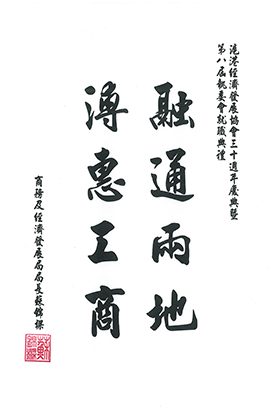 滬港經濟發展協會三十週年慶典暨
第八屆執委會就職典禮
融通兩地
溥惠工商
商務及經濟發展局局長蘇錦樑